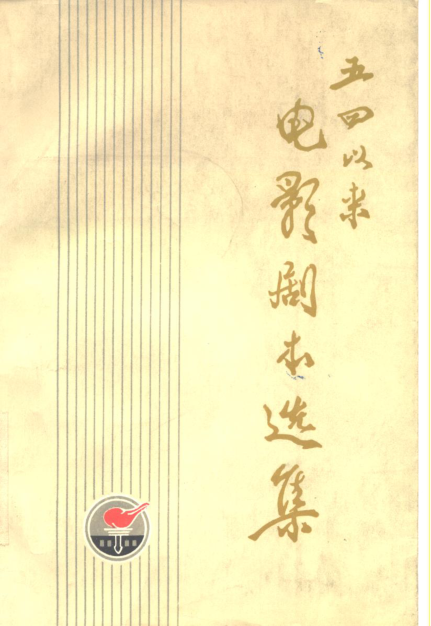 五四以来
电影剧本选集